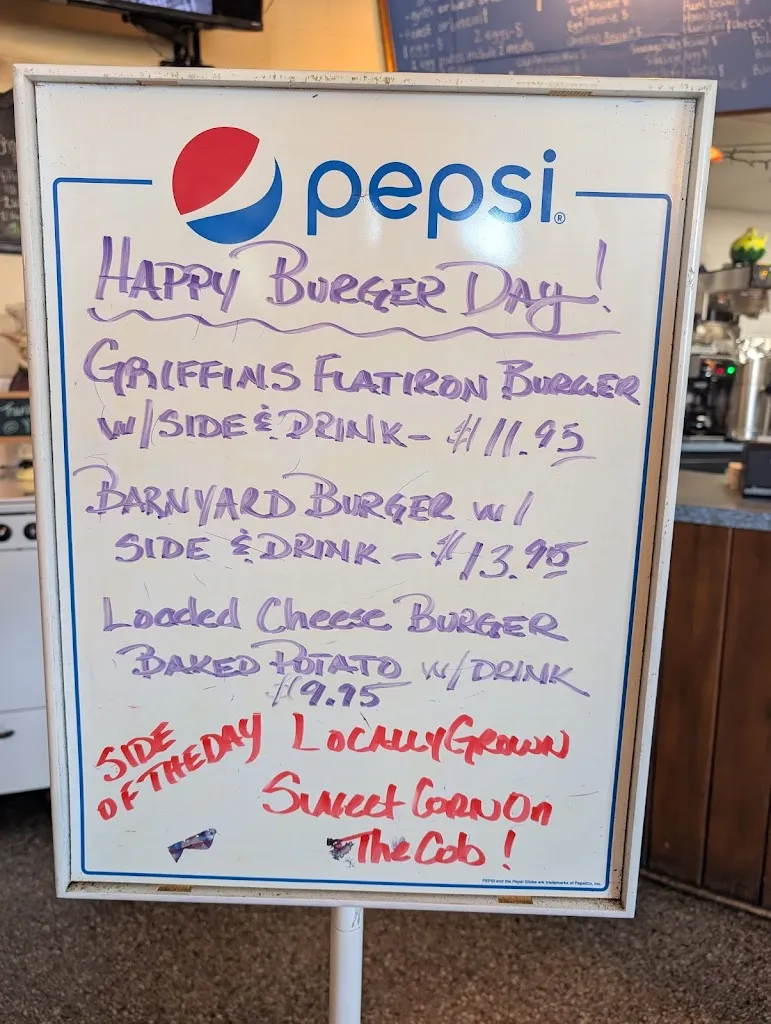 pepsi®
HAPPY BURGER DAY!
GRIFFINS FLATIRON BURGER
W/SIDE & DRINK - $11.95
BARNYARD BURGER W/
SIDE & DRINK - $13.95
Loaded Cheese BURGER
BAKED POTATO W/DRINK
$9.95
SIDE
OF THE DAY
LOCALLY GROWN
Sweet CORN On
The Cob!
PEPSI and the Pepsi Globe are trademarks of PepsiCo, Inc.